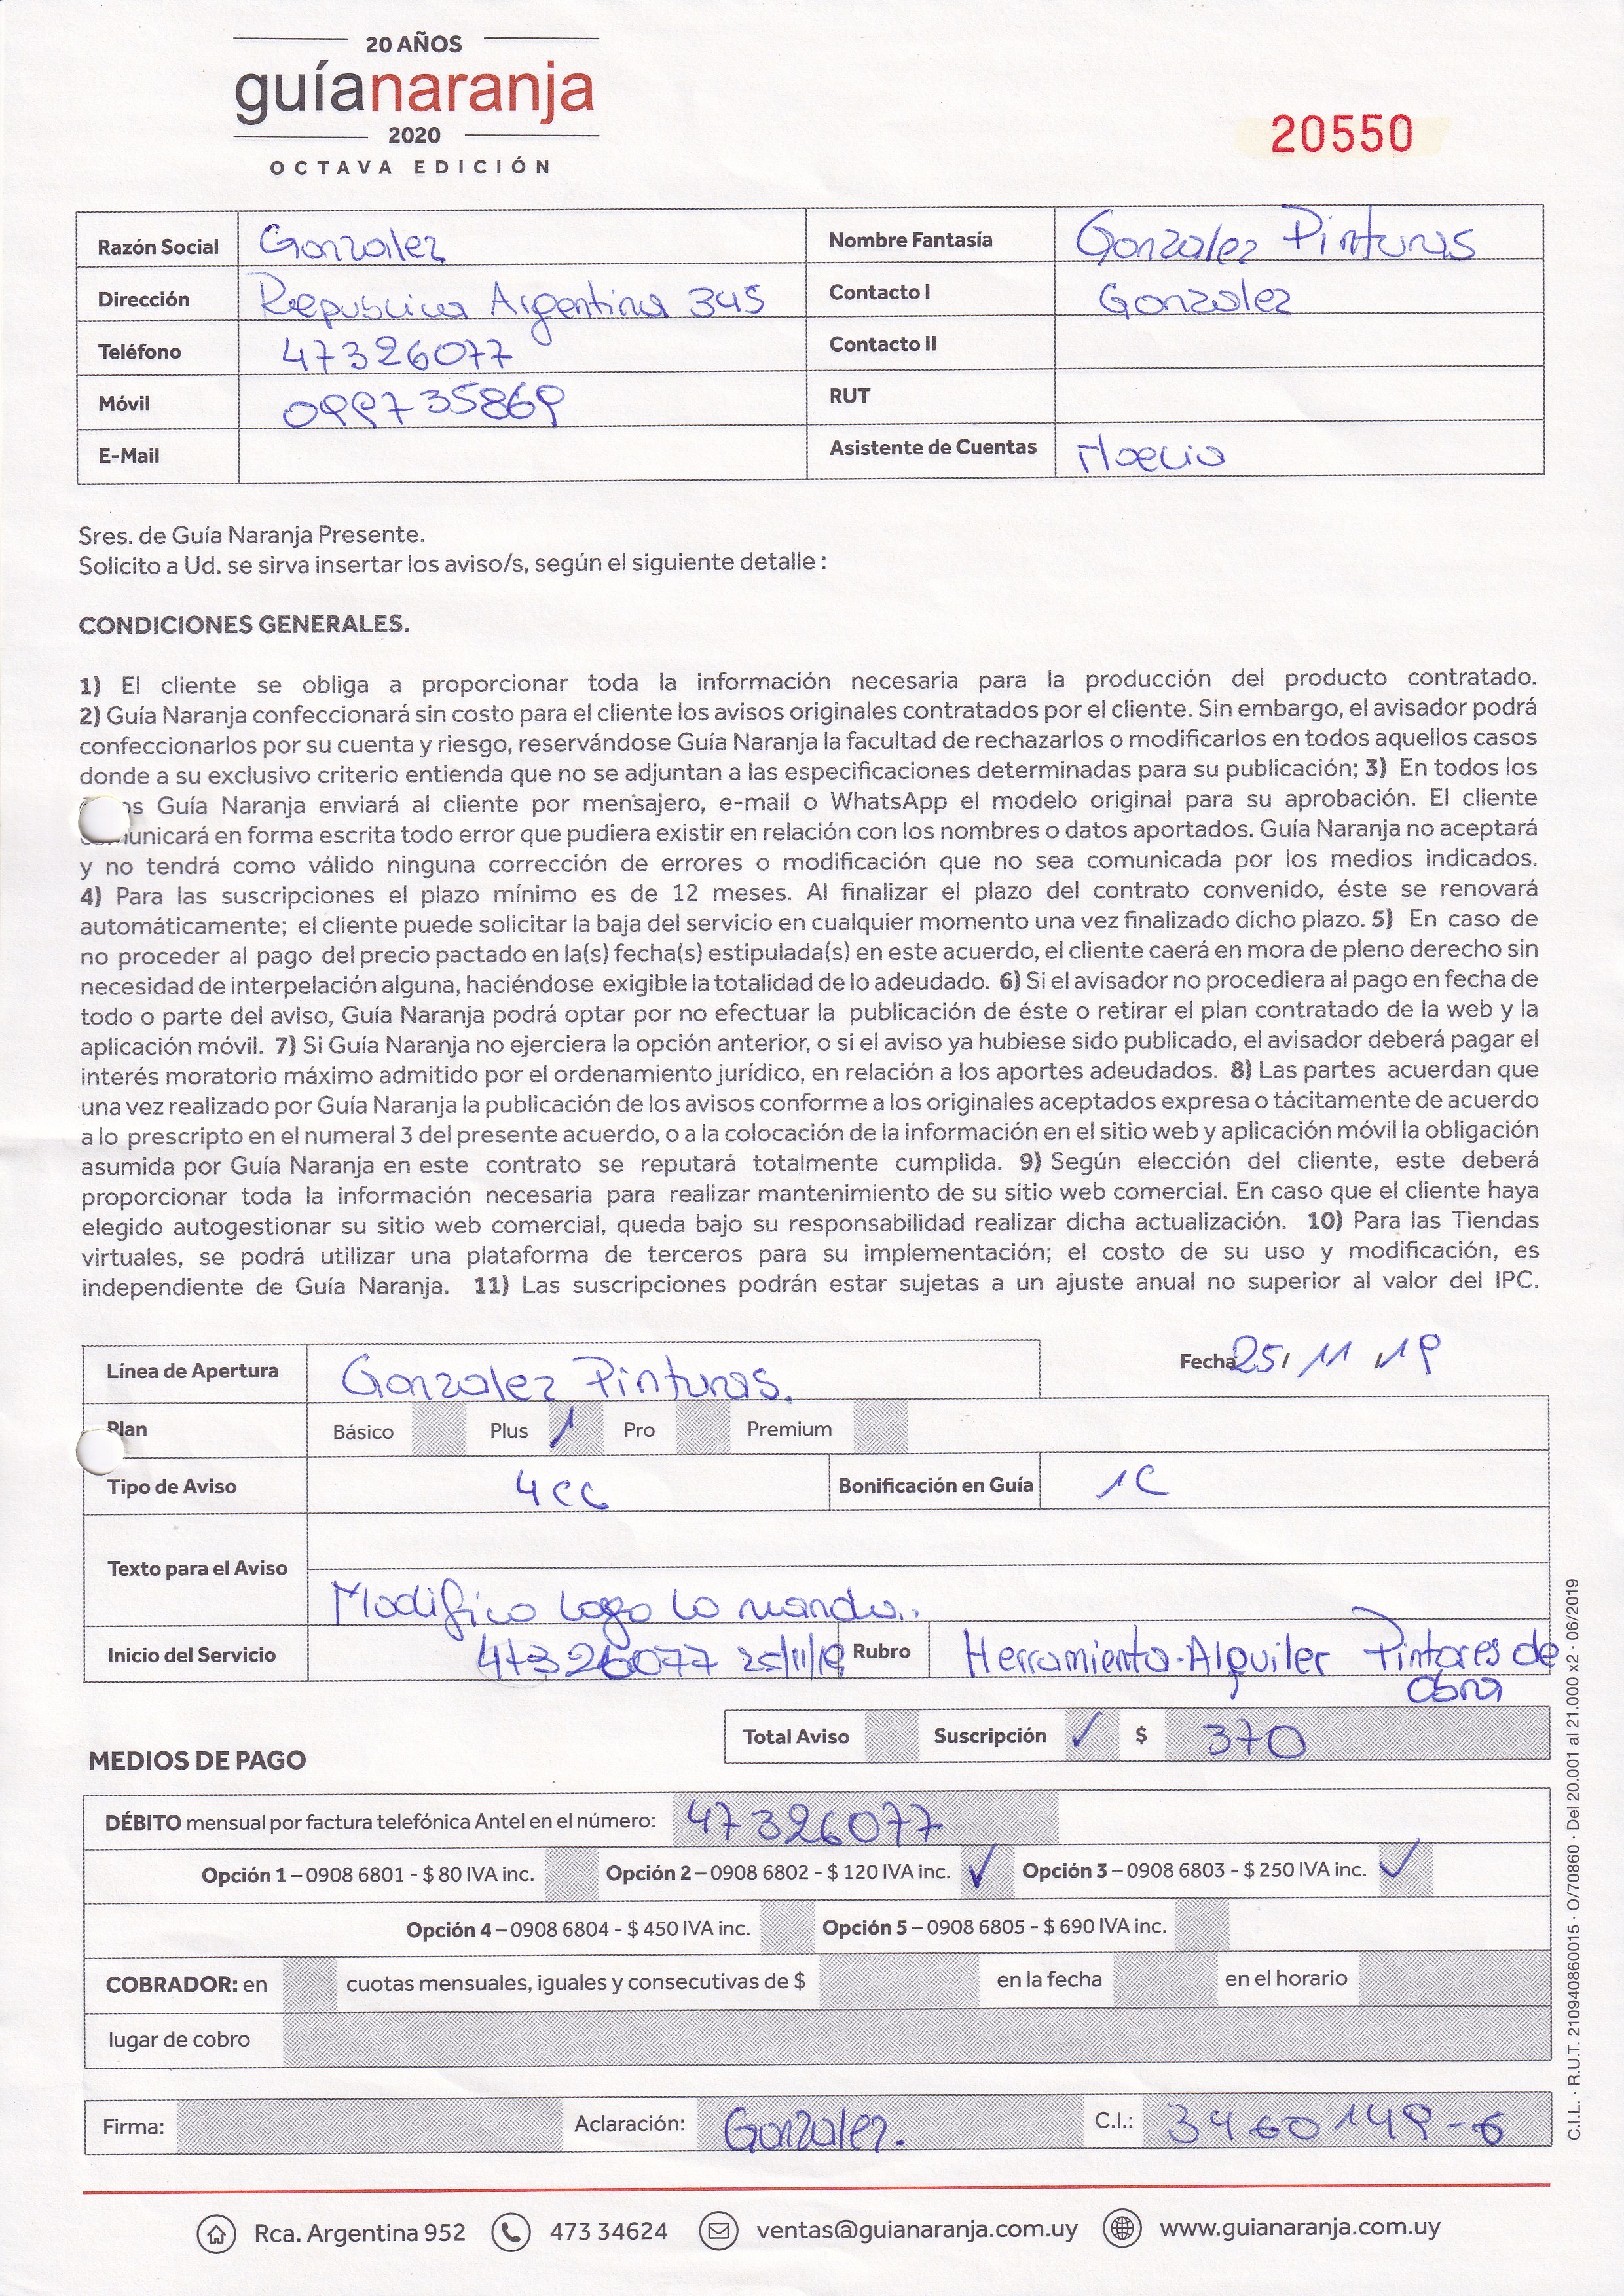 20 AÑOS
guíanaranja
2020
OCTAVA EDICIÓN
20550
Razón Social Gonzalez Nombre Fantasía Gonzalez Pinturas
Dirección Republica Argentina 345 Contacto I Gonzalez
Teléfono 47326077 Contacto II
Móvil 099735869 RUT
E-Mail Asistente de Cuentas
Sres. de Guía Naranja Presente.
Solicito a Ud. se sirva insertar los aviso/s, según el siguiente detalle :
CONDICIONES GENERALES.
1) El cliente se obliga a proporcionar toda la información necesaria para la producción del producto contratado.
2) Guía Naranja confeccionará sin costo para el cliente los avisos originales contratados por el cliente. Sin embargo, el avisador podrá
confeccionarlos por su cuenta y riesgo, reservándose Guía Naranja la facultad de rechazarlos o modificarlos en todos aquellos casos
donde a su exclusivo criterio entienda que no se adjuntan a las especificaciones determinadas para su publicación; 3) En todos los
Guía Naranja enviará al cliente por mensajero, e-mail o WhatsApp el modelo original para su aprobación. El cliente
en forma escrita todo error que pudiera existir en relación con los nombres o datos aportados. Guía Naranja no aceptará
y no tendrá como válido ninguna corrección de errores o modificación que no sea comunicada por los medios indicados.
4) Para las suscripciones el plazo mínimo es de 12 meses. Al finalizar el plazo del contrato convenido, éste se renovará
automáticamente; el cliente puede solicitar la baja del servicio en cualquier momento una vez finalizado dicho plazo. 5) En caso de
no proceder al pago del precio pactado en la(s) fecha(s) estipulada(s) en este acuerdo, el cliente caerá en mora de pleno derecho sin
necesidad de interpelación alguna, haciéndose exigible la totalidad de lo adeudado. 6) Si el avisador no procediera al pago en fecha de
todo o parte del aviso, Guía Naranja podrá optar por no efectuar la publicación de éste o retirar el plan contratado de la web y la
aplicación móvil. 7) Si Guía Naranja no ejerciera la opción anterior, o si el aviso ya hubiese sido publicado, el avisador deberá pagar el
interés moratorio máximo admitido por el ordenamiento jurídico, en relación a los aportes adeudados. 8) Las partes acuerdan que
una vez realizado por Guía Naranja la publicación de los avisos conforme a los originales aceptados expresa o tácitamente de acuerdo
a lo prescripto en el numeral 3 del presente acuerdo, o a la colocación de la información en el sitio web y aplicación móvil la obligación
asumida por Guía Naranja en este contrato se reputará totalmente cumplida. 9) Según elección del cliente, este deberá
proporcionar toda la información necesaria para realizar mantenimiento de su sitio web comercial. En caso que el cliente haya
elegido autogestionar su sitio web comercial, queda bajo su responsabilidad realizar dicha actualización. 10) Para las Tiendas
virtuales, se podrá utilizar una plataforma de terceros para su implementación; el costo de su uso y modificación, es
independiente de Guía Naranja. 11) Las suscripciones podrán estar sujetas a un ajuste anual no superior al valor del IPC.
Línea de Apertura Gonzalez Pinturas. Fecha 25 / 11 / 19
Plan Básico Plus / Pro Premium
Tipo de Aviso 4cc Bonificación en Guía 1C
Texto para el Aviso
Modifico logo lo manda..
Inicio del Servicio 47326077 25/11/19 Rubro Herramienta-Alquiler Pintores de
Obra
Total Aviso Suscripción ✓ $ 370
MEDIOS DE PAGO
DÉBITO mensual por factura telefónica Antel en el número: 47326077
Opción 1 – 0908 6801 - $ 80 IVA inc. Opción 2 – 0908 6802 - $ 120 IVA inc. ✓ Opción 3 – 0908 6803 - $ 250 IVA inc. ✓
Opción 4 – 0908 6804 - $ 450 IVA inc. Opción 5 – 0908 6805 - $ 690 IVA inc.
COBRADOR: en cuotas mensuales, iguales y consecutivas de $ en la fecha en el horario
lugar de cobro
Firma: Aclaración: Gonzalez. C.I.: 3460149-6
C.I.L. · R.U.T. 210940860015 · O/70860 · Del 20.001 al 21.000 x2 · 06/2019
Rca. Argentina 952 473 34624 ventas@guianaranja.com.uy www.guianaranja.com.uy